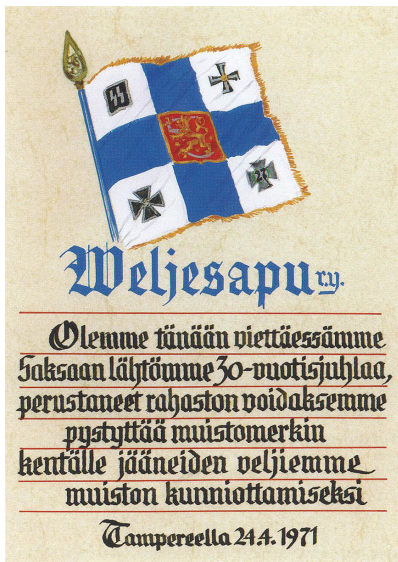 Weljesapu r.y.
Olemme tänään viettäessämme
Saksaan lähtömme 30-vuotisjuhlaa,
perustaneet rahaston voidaksemme
pystyttää muistomerkin
kentälle jääneiden veljiemme
muiston kunniottamiseksi
Tampereella 24.4.1971